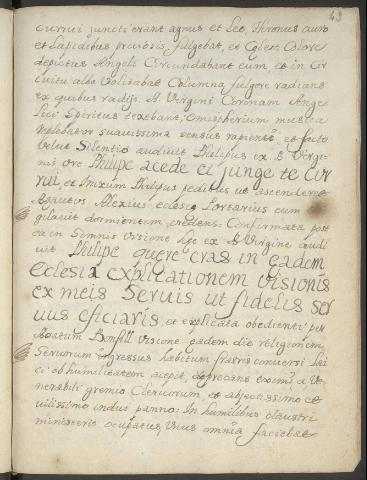 43
currui juncti erant agnus et Leo, thronus auro
et Lapidibus preciosis fulgebat, et Celest. Colore
depictus Angeli Circundabant eum et in Cir
cuitu alba Volitabat Columna fulgore radians
ex quibus radijs. B. Virgini Coronam Ange
lici Spiritus texebant, emispherium musica
replebatur suauissima sensus rapiente: et facto
velut Silentio audiuit Philipus ex B. Virgi-
nis ore Philipe acede et junge te cur
rui, et nixum Philipus pedibus ut ascenderet
Beatus Alexius eclesie Portarius eum
gilauit dormientem credens: Confirmata post
ea in Somnis Visione hec ex B. Virgine audi
uit Philipe quere cras in eadem
eclesia explicationem visionis
ex meis Seruis ut fidelis ser
uus eficiaris, et explicata obedienti per
Beatum Bonfill Visione eadem die religionem
Seruorum ingressus habitum fratris conuersi Lai
ci ob humilitatem acepit, deprecans eximi a Ve
nerabili gremio Clericorum, et abjectissimo et
uilissimo indui panno: In humilibus claustri
ministerio ocupatus, Unus omnia faciebat